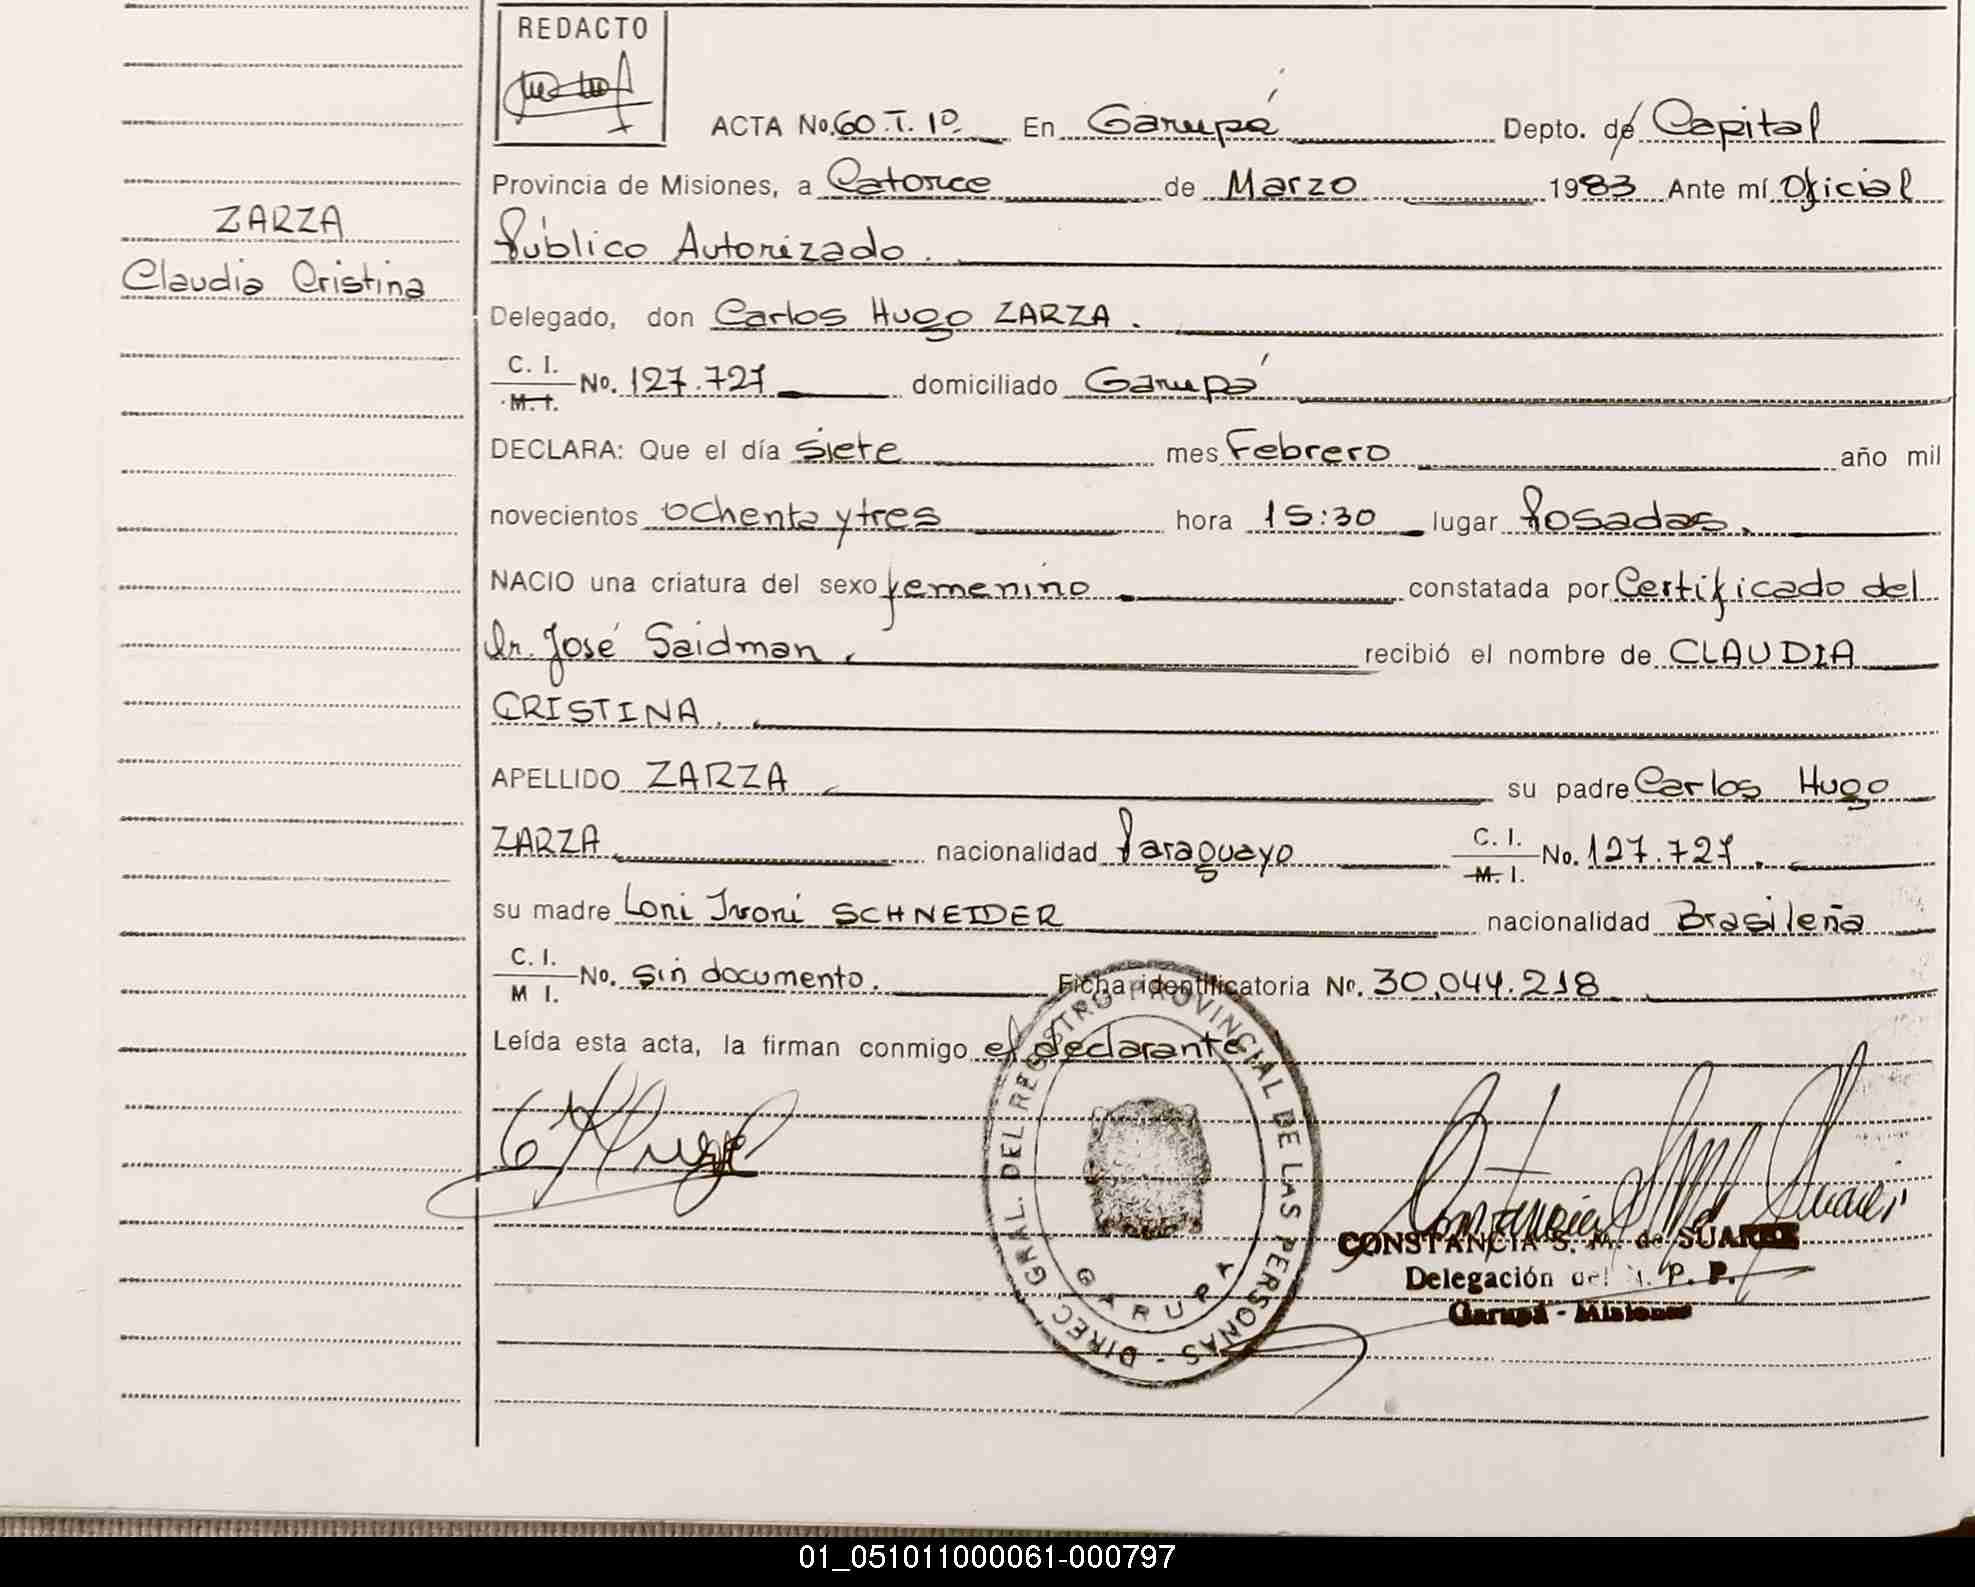 REDACTO
ACTA No. 60.T.1º. En Garupá Depto. de Capital
Provincia de Misiones, a Catorce de Marzo 1983 Ante mí Oficial
Público Autorizado.
ZARZA
Claudia Cristina
Delegado, don Carlos Hugo ZARZA.
C. I.
M. I.
No. 127.727 domiciliado Garupá
DECLARA: Que el día siete mes Febrero año mil
novecientos ochenta y tres hora 15:30 lugar Posadas.
NACIO una criatura del sexo femenino constatada por Certificado del
Dr. José Saidman. recibió el nombre de CLAUDIA
CRISTINA.
APELLIDO ZARZA su padre Carlos Hugo
ZARZA nacionalidad Paraguayo C. I. M. I. No. 127.727.
su madre Loni Ivoni SCHNEIDER nacionalidad Brasileña
C. I. M I. No. sin documento. Ficha identificatoria No. 30.044.218
Leída esta acta, la firman conmigo el declarante
DIREC. GRAL. DEL REGISTRO PROVINCIAL DE LAS PERSONAS -
GARUPA
CONSTANCIA S. M. de SUAREZ
Delegación del P. P.
Garupá - Misiones
01_051011000061-000797